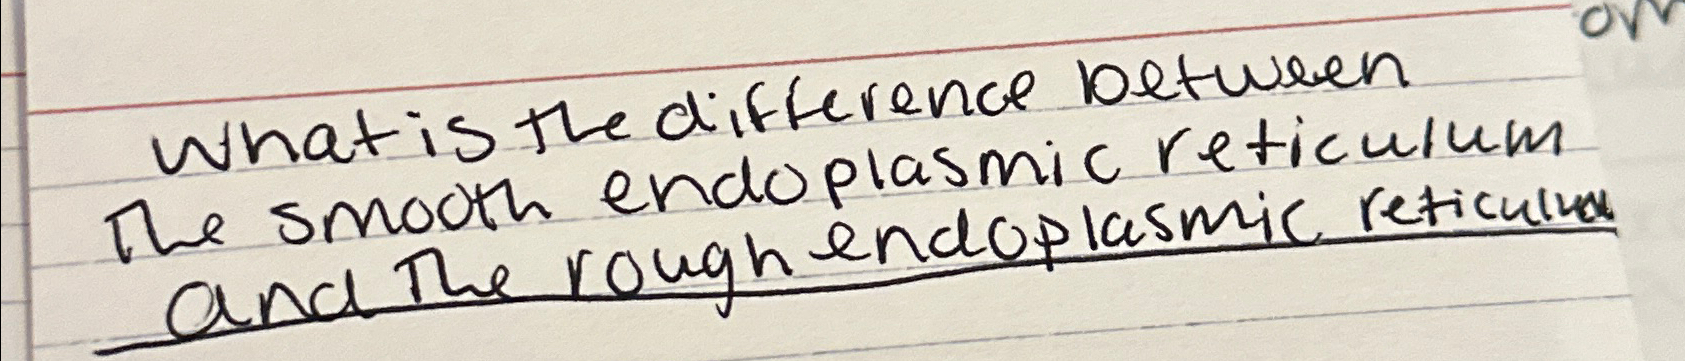 What is the difference between
The smooth endoplasmic reticulum
and The rough endoplasmic reticulum